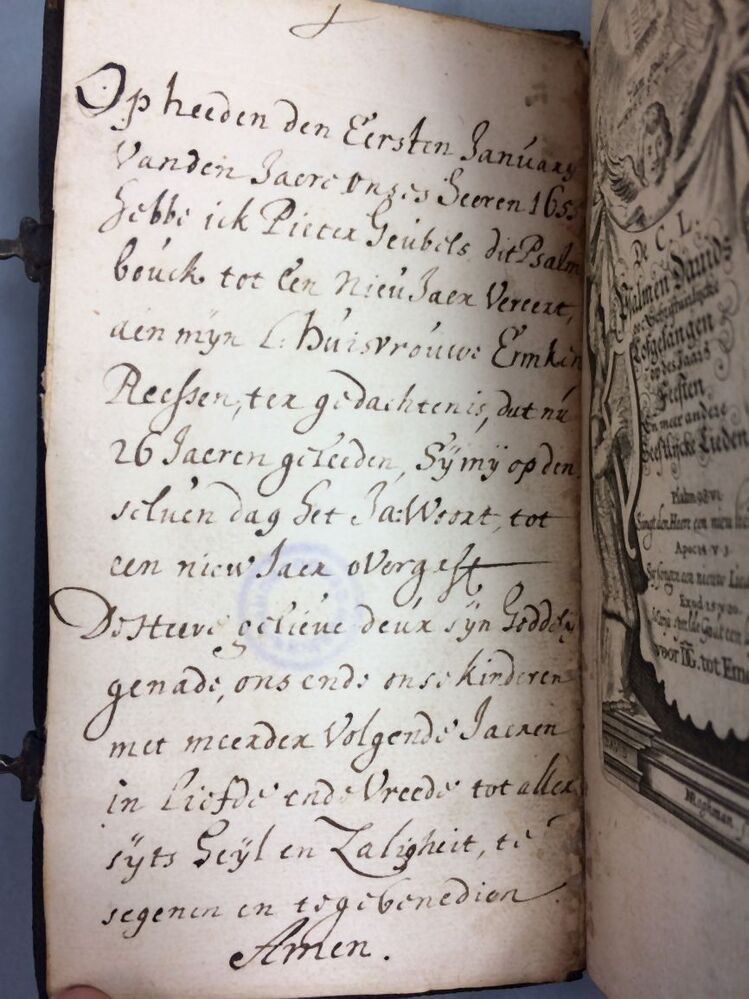 Op heeden den Eersten January
vanden Jaere onses heeren 1655
hebbe ick Pieter Geubels dit Psalm
bouck tot Een Nieu Jaer Vereert,
aen mÿn L: huisvrouwe Ermken
Reessen, ter gedachtenis, dat nu
26 Jaeren geleeden, Sÿ mÿ op den
selven dag het Ja:Woort, tot
een niew Jaer overgaft
De Heere gelieve deur sÿn Goddely
genade, ons ende onse kinderen
met meerder Volgende Jaeren
in Liefde ende Vreede tot aller
sÿts heÿl en Zaligheit, te
segenen en te gebenedien
Amen.
De C L.
Psalmen Davids
Lofgesangen
op des Jaars
Feesten
En meer andere
Geestlijcke Lieden
Psalm. 98. vi.
Singt den Heere een nieu lied
Apoc. 14. v 3.
Exod. 15. v 20.
voor IIG. tot Em
Moghman.